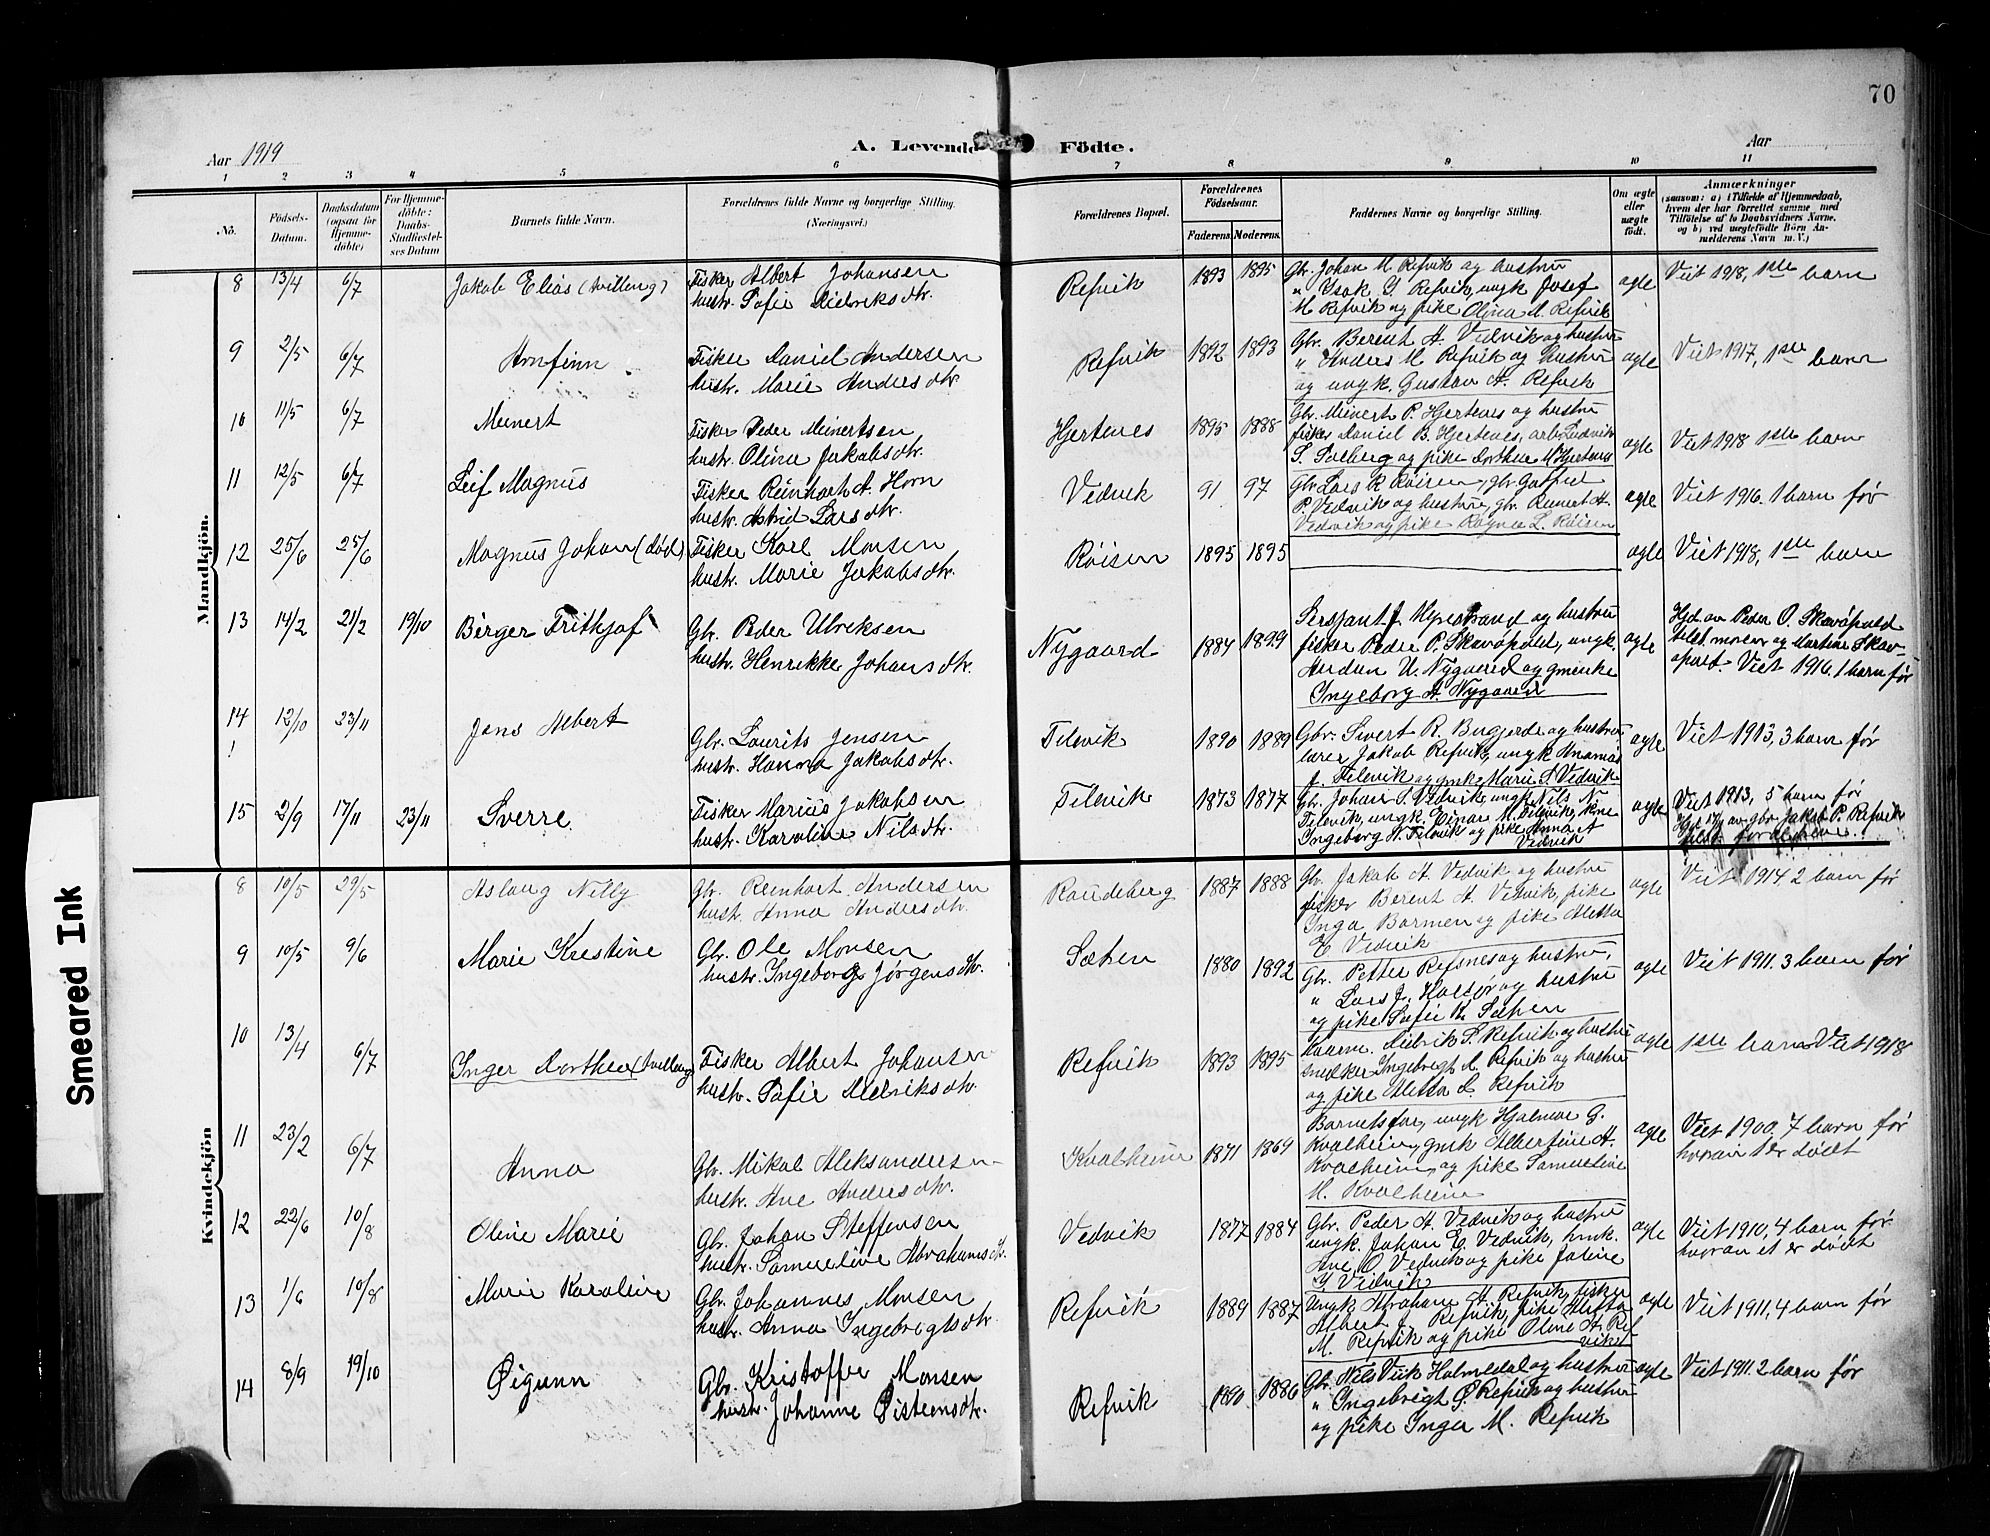 70
Aar 1919
A. Levende Födte.
Aar
1 2 3 4 5 6 7 8 9 10 11
No.
Födsels-Datum.
Daabsdatum (ogsaa for Hjemme-döbte)
For Hjemme-döbte: Daabs-Stadfæstel-ses Datum
Barnets fulde Navn.
Forældrenes fulde Navne og borgerlige Stilling. (Næringsvei.)
Forældrenes Bopæl.
Forældrenes Födselsaar.
Faderens. Moderens.
Faddernes Navne og borgerlige Stilling.
Om ægte eller uægte födt.
Anmærkninger
(saasom: a) i Tilfælde af Hjemmedaab, hvem der har forrettet samme med Tilföielse af to Daabsvidners Navne, og b) ved uægtefödte Börn An-melderens Navn m. V.)
Mandkjön.
8 13/4 6/7 Jakob Elias (tvilling) Fisker Albert Johansen
hustr. Sofie Didriksdtr.
Refvik 1893 1895 Gbr. Johan M. Refvik og hustru
" Isak S. Refvik, ungk Josef
M. Refvik og pike Olina A. Refvik
egte Viet 1918, 1ste barn
9 2/5 6/7 Arnfinn Fisker Daniel Andersen
hustr. Marie Andersdtr.
Refvik 1892 1893 Gbr. Berent A. Vedvik og hustru
" Anders M. Refvik og hustru
og ungk. Gustav A. Refvik
egte Viet 1917, 1ste barn
10 11/5 6/7 Meinert Fisker Peder Meinertsen
hustr. Olina Jakobsdtr.
Hjertenes 1895 1888 Gbr. Meinert P. Hjertenes og hustru
fisker Daniel B. Hjertenes, arb. Ludvik
S. Solberg og pike Dorthea M Hjertenes
egte Viet 1918 1ste barn
11 12/5 6/7 Leif Magnus Fisker Reinhart A. Horn
hustr. Astrid Larsdtr.
Vedvik 91 97 Gbr. Lars R. Røisen, gbr.
P. Vedvik og hustru, gbr. Reinert A.
Vedvik og pike Ragna L. Røisen
egte Viet 1916. 1 barn før
12 25/6 25/6 Magnus Johan (død) Fisker Karl Monsen
hustr. Marie Jakobsdtr.
Røisen 1895 1895 egte Viet 1918, 1ste barn
13 14/2 21/2 19/10 Birger Fritkjof Gbr. Peder Ulriksen
hustr. Henrikke Johansdtr.
Nygaard 1884 1899 Sersjant J. Myrestrand og hustru
fisker Peder P. Skavøpold, ungk.
U. Nygaard og gmk
Ingeborg A. Nygaard
egte Hjd. av Peder O. Skavøpold
tilst. moren og Martine Skav-
øpold. Viet 1916. 1 barn før
14 12/10 23/11 Jens Albert
! Gbr. Laurits Jensen
hustr. Hanna Jakobsdtr.
Tilevik 1890 1889 Gbr. Sivert R. og hustru
lærer Jakob Refvik, ungk Ananias
J. Tilevik og gmk. Marie S. Vedvik
egte Viet 1913, 3 barn før
15 2/9 17/11 23/11 Sverre Fisker Marius Jakobsen
hustr. Karoline Nilsdtr.
Tilevik 1873 1877 Gbr. Johan S. Vedvik, ungk Nils N
Tilevik, ungk. Einar M. Tilevik,
Ingeborg N. Tilevik og pike Anna A
Vedvik
egte Viet 1913, 5 barn før
Hjd. 17/11 av gbr. Jakob P. Refvik
tilst. forældrene.
Kvindekjön
8 10/5 29/5 Aslaug Nilly Gbr. Reinhart Andersen
hustr. Anna Andersdtr.
Raudeberg 1887 1888 Gbr. Jakob A. Vedvik og hustru
fisker Berent A. Vedvik, pike
Inga Barmen og pike Aletta
E. Vedvik
egte Viet 1914 2 barn før
9 10/5 9/6 Marie Kristine Gbr. Ole Monsen
hustr. Ingeborg Jørgensdtr.
Sæten 1880 1892 Gbr. Petter Refsnes og hustru,
" Lars J. og hustru
og pike Sofie K. Sæten
egte Viet 1911. 3 barn før
10 13/4 6/7 Inger Dorthea (tvilling) Fisker Albert Johansen
hustr. Sofie Didriksdtr.
Refvik 1893 1895 Kaarm. Didrik S. Refvik og hustru
snedker Ingebrigt A. Refvik og hustru
og pike Aletta D. Refvik
egte 1ste barn Viet 1918
11 23/2 6/7 Anna Gbr. Mikal Aleksandersen
hustr. Ane Andersdtr.
Kvalheim 1871 1869 Barnets far, ungk Hjalmar G.
Kvalheim, gmk Albertine A.
Kvalheim og pike Samueline
M. Kvalheim
egte Viet 1900, 7 barn før
hvoran 1 er dødt
12 22/6 10/8 Oline Marie Gbr. Johan Steffensen
hustr. Samueline Abrahamsdtr.
Vedvik 1877 1884 Gbr. Peder A. Vedvik og hustru
ungk. Johan E. Vedvik, hmk.
Ane O. Vedvik og pike Jaline
J. Vedvik
egte Viet 1910, 4 barn før
hvoran et er dødt
13 1/6 10/8 Marie Karoline Gbr. Johannes Monsen
hustr. Anna Ingebrigtsdtr.
Refvik 1889 1887 Ungk Abraham A. Refvik, fisker
Albert J. Refvik, pike Aletta
M. Refvik og pike Oline A. Ref
vik
egte Viet 1911, 4 barn før
14 8/9 19/10 Øigunn Gbr. Kristoffer Monsen
hustr. Johanne Øisteensdtr.
Refvik 1890 1886 Gbr. Nils Viik Holmedal og hustru
" Ingebrigt P. Refvik og hustru
og pike Inga M. Refvik
egte Viet 1911 2 barn før
Smeared Ink